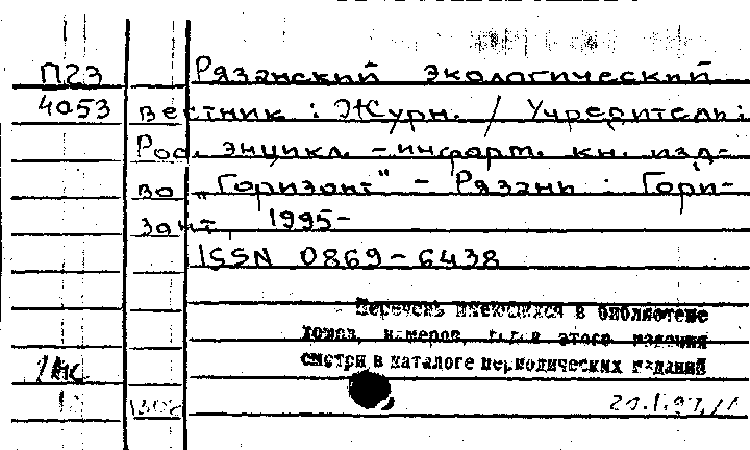 П23 Рязанский экологический
4053 вестник : Журн. / Учредитель:
Ряз. энцикл. - информ. кн. изд-
во „Горизонт" - Рязань : Гори-
зонт, 1995-
ISSN 0869-6438
Перечень имеющихся в библиотеке
томов, номеров, этого издания
смотри в каталоге периодических изданий